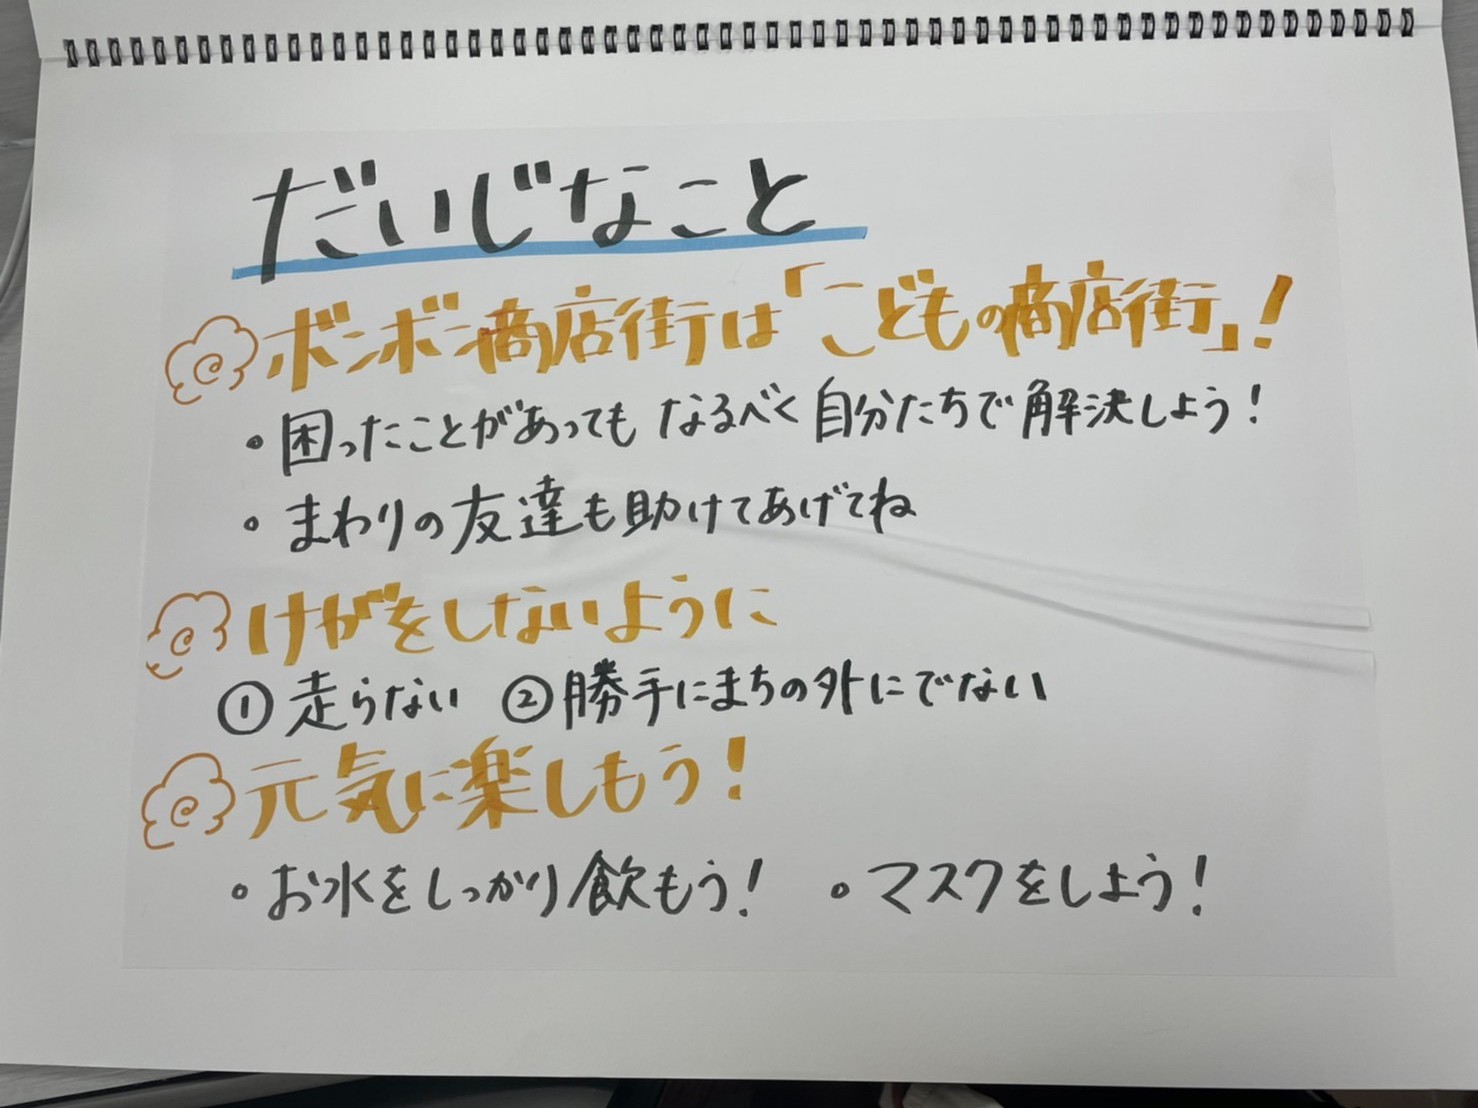 だいじなこと
ボンボン商店街は「こどもの商店街」!
・困ったことがあっても なるべく自分たちで解決しよう!
・まわりの友達も助けてあげてね
けがをしないように
①走らない ②勝手にまちの外にでない
元気に楽しもう!
・お水をしっかり飲もう! ・マスクをしよう!